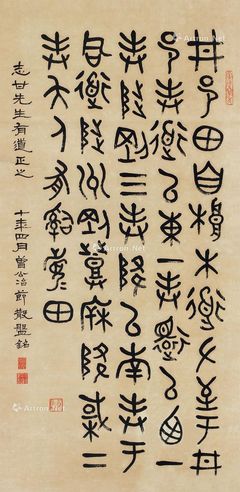 井邑田自根木道左至于井
邑封道以東一封還以西一
封陟剛三封降以南封于
同道陟州剛登降棫二
封夨人有嗣眉田
志甘先生有道正之
十年四月曾公冶節散盤銘
Artron.Net